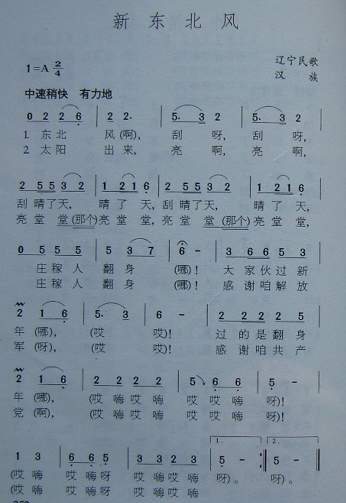 新 东 北 风
辽宁民歌
1=A 2/4
汉 族
中速稍快 有力地
0 2 2 6 | 2 1 6 | 5· 3 2 | 5· 3 2 |
1. 东北 风(啊), 刮 呀, 刮 呀,
2. 太阳 出来, 亮 啊, 亮 啊,
2 5 5 3 2 | 1 2 1 6 | 2 5 5 3 2 | 1 2 1 6 |
刮 刮晴了天, 晴了 天, 刮晴了天, 晴了天,
亮堂 堂(那个)亮堂 堂, 亮堂 堂(那个)亮堂 堂,
0 5 5 5 | 5 3 7 | 6 - | 3 6 6 5 3 |
庄稼人 翻身 (哪)! 大家伙过新
庄稼人 翻身 (哪)! 感谢咱解放
2 1 6 | 5· 3 | 2 - | 2 2 2 2 5 |
年 (哪), (哎 哎)! 过的是翻身
军 (呀), (哎 哎)! 感谢咱共产
2 1 6 | 2 2 2 2 | 5 6 6 | 5 - |
年 (哪), (哎嗨哎嗨 哎哎嗨 呀)!
党 (啊), (哎嗨哎嗨 哎哎嗨 呀)!
1 3 | 6 6 5 | 1 3 1 3 | 6 6 5 | 1. 5 - :| 2. 5 - ‖
(哎 嗨 哎嗨呀 哎嗨哎嗨 哎哎嗨 呀)。 呀)。
(哎 嗨 哎嗨呀 哎嗨哎嗨